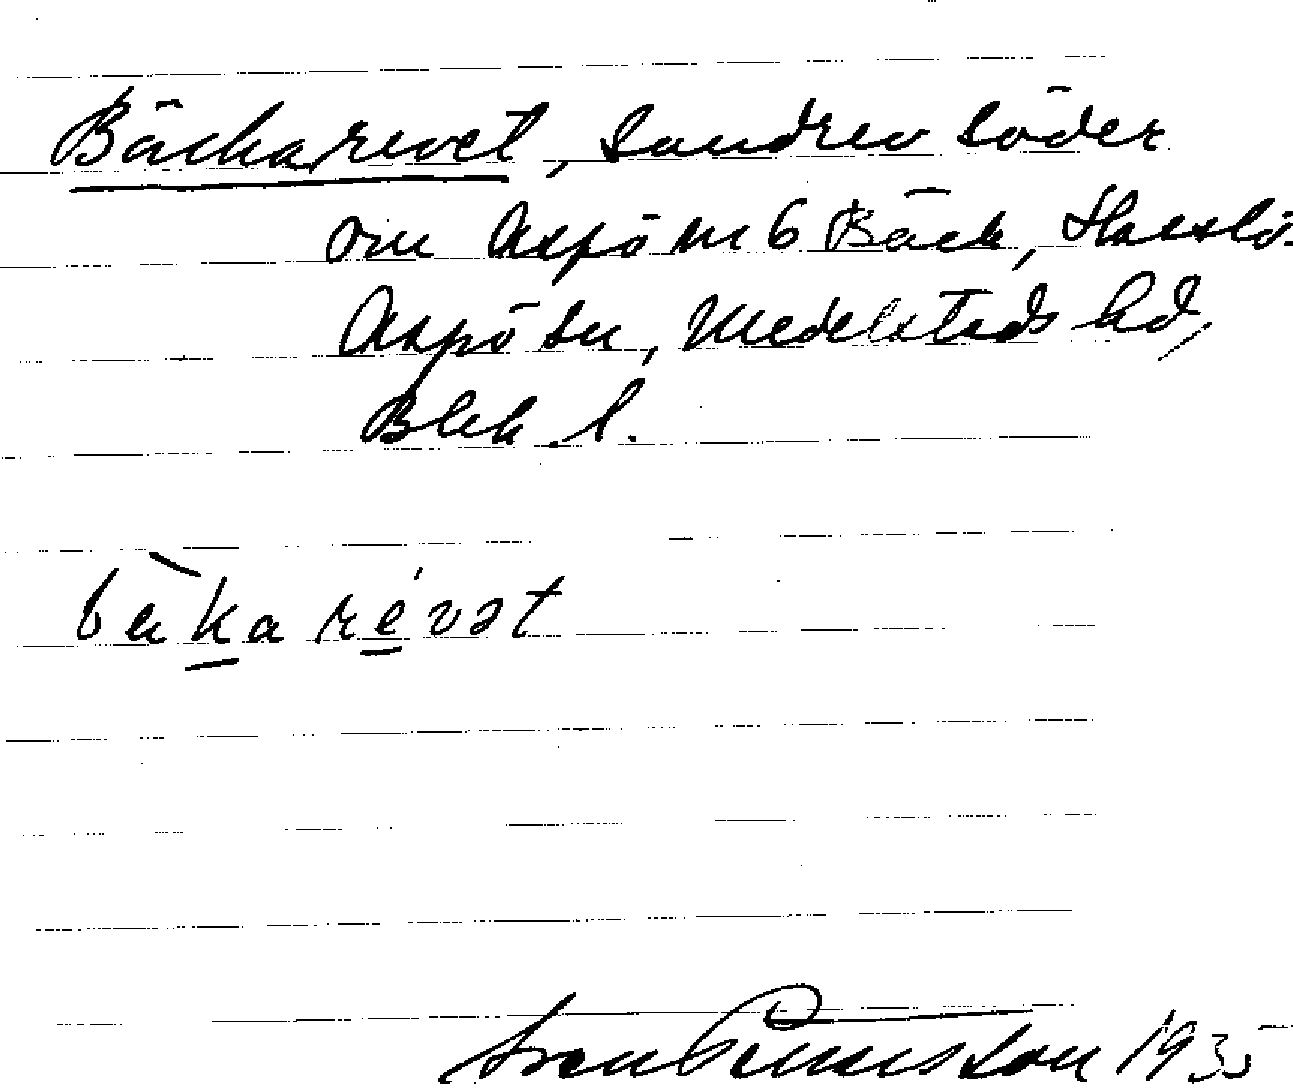 Bäckarevet, Sandrev söder
om Aspö nr 6 Bäck, Hasslö-
Aspö sn, Medelstads hd,
Blek. l.
bäkarévət
Sven 1935